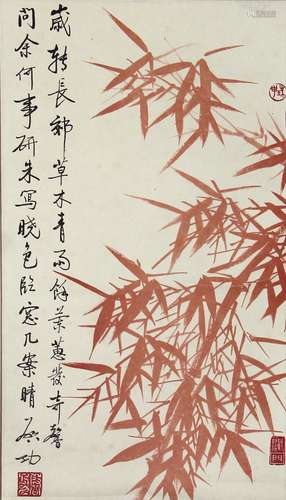 歲轉長郊草木青雨餘蕙發奇馨
問余何事研朱寫曉色臨窓几案晴 启功